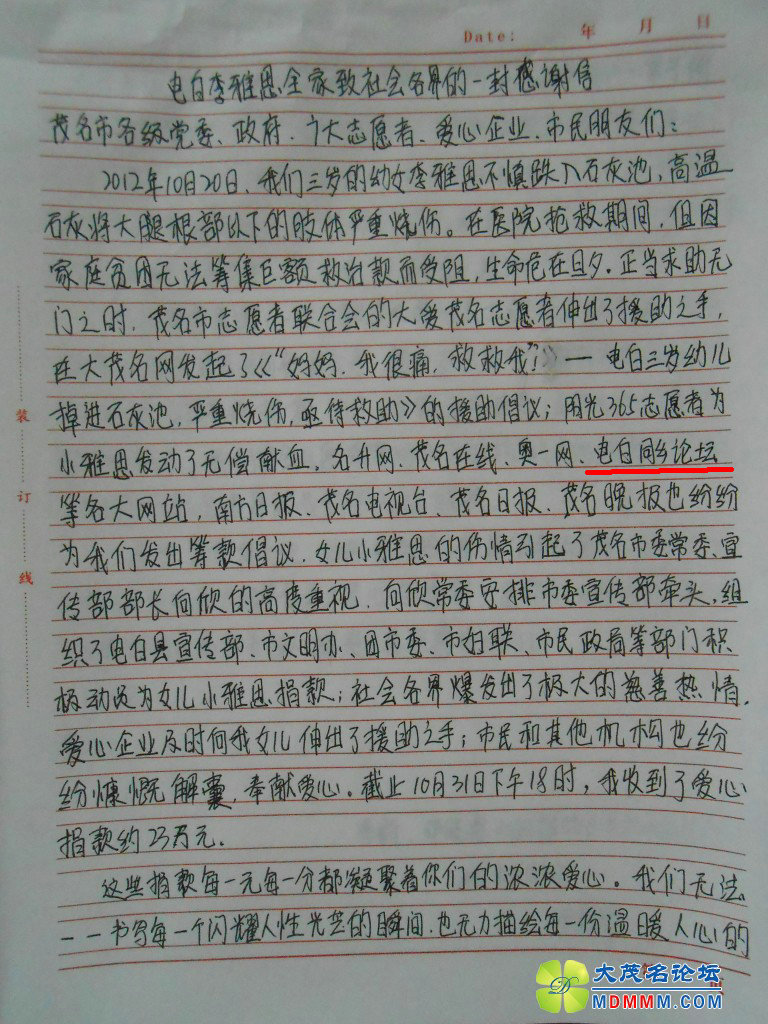 Date: 年 月 日
电白李雅恩全家致社会各界的一封感谢信
茂名市各级党委、政府、广大志愿者、爱心企业、市民朋友们：
2012年10月20日，我们三岁的幼女李雅恩不慎跌入石灰池，高温
石灰将大腿根部以下的肢体严重烧伤。在医院抢救期间，但因
家庭贫困无法筹集巨额救治款而受阻，生命危在旦夕。正当求助无
门之时，茂名市志愿者联合会的大爱茂名志愿者伸出了援助之手，
在大茂名网发起了《“妈妈，我很痛，救救我”！》——电白三岁幼儿
掉进石灰池，严重烧伤，亟待救助》的援助倡议；阳光365志愿者为
小雅恩发动了无偿献血，名升网、茂名在线、奥一网、电白同乡论坛
等各大网站，南方日报、茂名电视台、茂名日报、茂名晚报也纷纷
为我们发出筹款倡议，女儿小雅恩的伤情引起了茂名市委常委、宣
传部部长向欣的高度重视，向欣常委安排市委宣传部牵头，组
织了电白县宣传部、市文明办、团市委、市妇联、市民政局等部门积
极动员为女儿小雅恩捐款；社会各界爆发出了极大的慈善热情，
爱心企业及时向我女儿伸出了援助之手；市民和其他机构也纷
纷慷慨解囊，奉献爱心。截止10月31日下午18时，我收到了爱心
捐款约23万元。
这些捐款每一元每一分都凝聚着你们的浓浓爱心。我们无法
一一书写每一个闪耀人性光芒的瞬间，也无力描绘每一份温暖人心的
装
订
线
大茂名论坛
MDMMM.COM